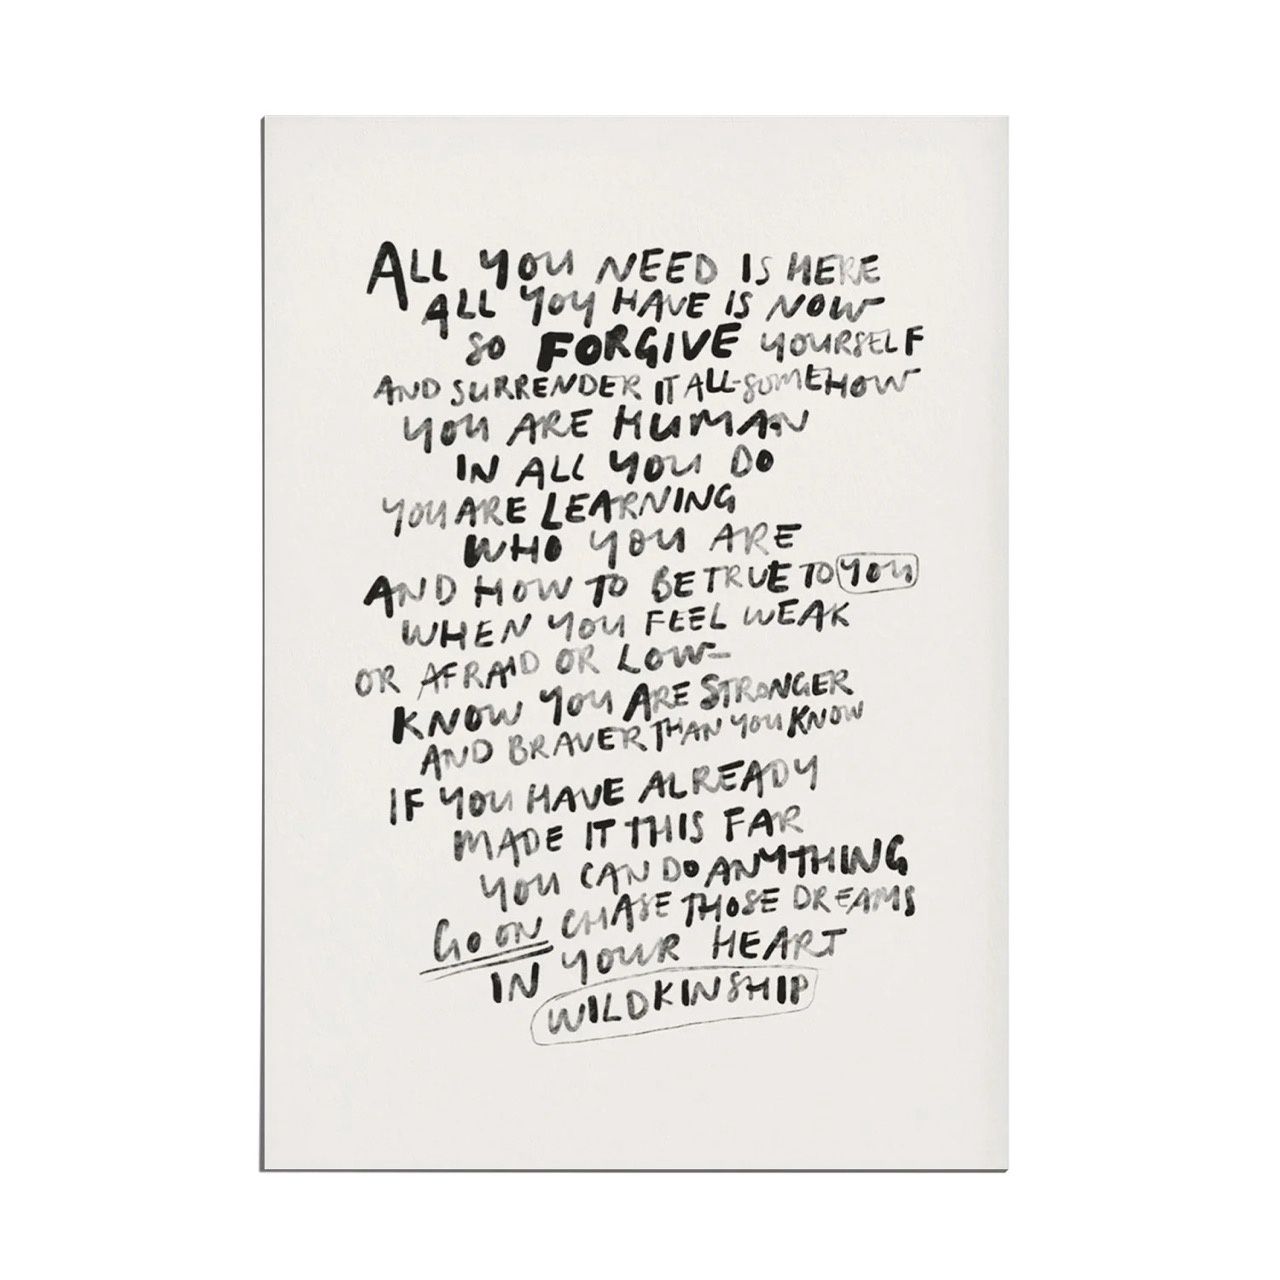 ALL YOU NEED IS HERE
ALL YOU HAVE IS NOW
SO FORGIVE YOURSELF
AND SURRENDER IT ALL-SOMEHOW
YOU ARE HUMAN
IN ALL YOU DO
YOU ARE LEARNING
WHO YOU ARE
AND HOW TO BE TRUE TO YOU
WHEN YOU FEEL WEAK
OR AFRAID OR LOW-
KNOW YOU ARE STRONGER
AND BRAVER THAN YOU KNOW
IF YOU HAVE ALREADY
MADE IT THIS FAR
YOU CAN DO ANYTHING
GO ON CHASE THOSE DREAMS
IN YOUR HEART
WILDKINSHIP